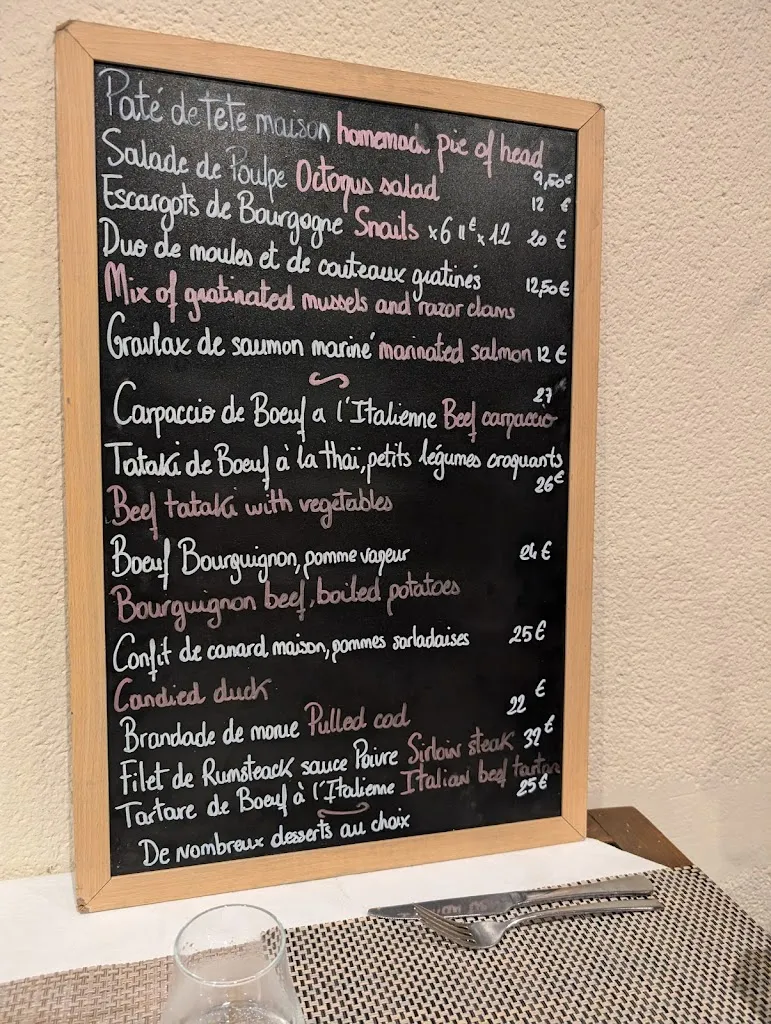 Paté de tete maison homemade pie of head 9,50€
Salade de Poulpe Octopus salad 12 €
Escargots de Bourgogne Snails x6 11€ x 12 20 €
Duo de moules et de couteaux gratinés 12,50€
Mix of gratinated mussels and razor clams
Gravlax de saumon mariné marinated salmon 12 €
27
Carpaccio de Boeuf a l'Italienne Beef carpaccio
Tataki de Boeuf à la thaï, petits légumes croquants
26€
Beef tataki with vegetables
Boeuf Bourguignon, pomme vapeur 24 €
Bourguignon beef, boiled potatoes
Confit de canard maison, pommes sarladaises 25€
Candied duck
Brandade de morue Pulled cod 22 €
Filet de Rumsteack sauce Poivre Sirloin steak 32€
Tartare de Boeuf à l'Italienne Italian beef tartar
25€
De nombreux desserts au choix